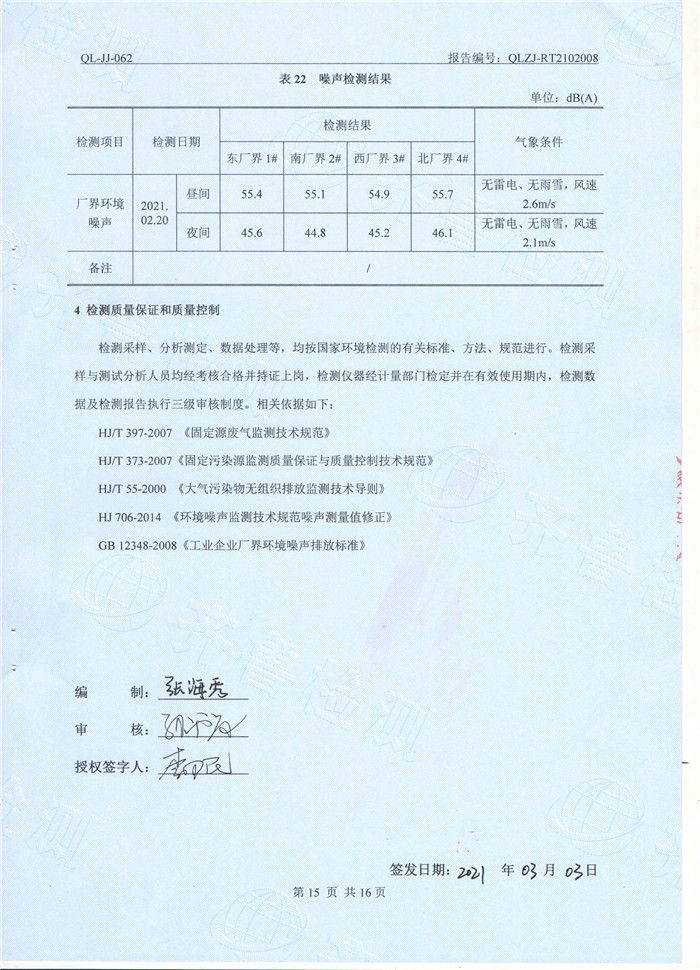 QL-JJ-062 报告编号：QLZJ-RT2102008
表 22 噪声检测结果
单位：dB(A)
检测项目 检测日期 检测结果 气象条件
东厂界 1# 南厂界 2# 西厂界 3# 北厂界 4#
厂界环境噪声 2021.02.20 昼间 55.4 55.1 54.9 55.7 无雷电、无雨雪，风速 2.6m/s
夜间 45.6 44.8 45.2 46.1 无雷电、无雨雪，风速 2.1m/s
备注 /
4 检测质量保证和质量控制
检测采样、分析测定、数据处理等，均按国家环境检测的有关标准、方法、规范进行。检测采
样与测试分析人员均经考核合格并持证上岗，检测仪器经计量部门检定并在有效使用期内，检测数
据及检测报告执行三级审核制度。相关依据如下：
HJ/T 397-2007 《固定源废气监测技术规范》
HJ/T 373-2007《固定污染源监测质量保证与质量控制技术规范》
HJ/T 55-2000 《大气污染物无组织排放监测技术导则》
HJ 706-2014 《环境噪声监测技术规范噪声测量值修正》
GB 12348-2008《工业企业厂界环境噪声排放标准》
齐鲁检测
编 制：张海秀
审 核：
授权签字人：
签发日期：2021 年 03 月 03 日
第 15 页 共 16 页